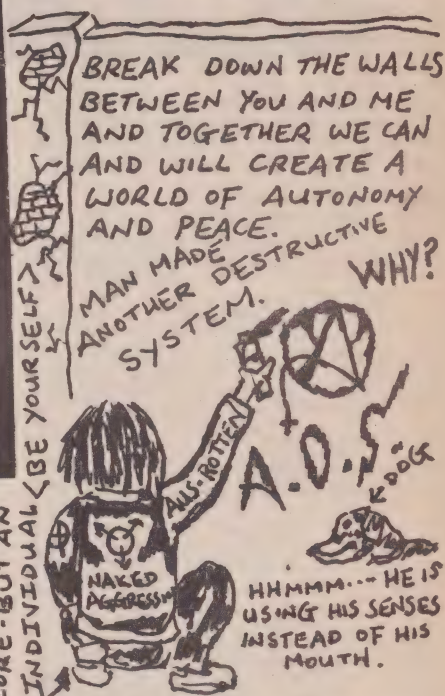 BREAK DOWN THE WALLS
BETWEEN YOU AND ME
AND TOGETHER WE CAN
AND WILL CREATE A
WORLD OF AUTONOMY
AND PEACE.
MAN MADE
ANOTHER DESTRUCTIVE
SYSTEM.
WHY?
A
A.O.S.
DOG
AUS-ROTTEN
NAKED
AGGRESSION
HHMMM... HE IS
USING HIS SENSES
INSTEAD OF HIS
MOUTH.
BUT AN
INDIVIDUAL <BE YOURSELF>